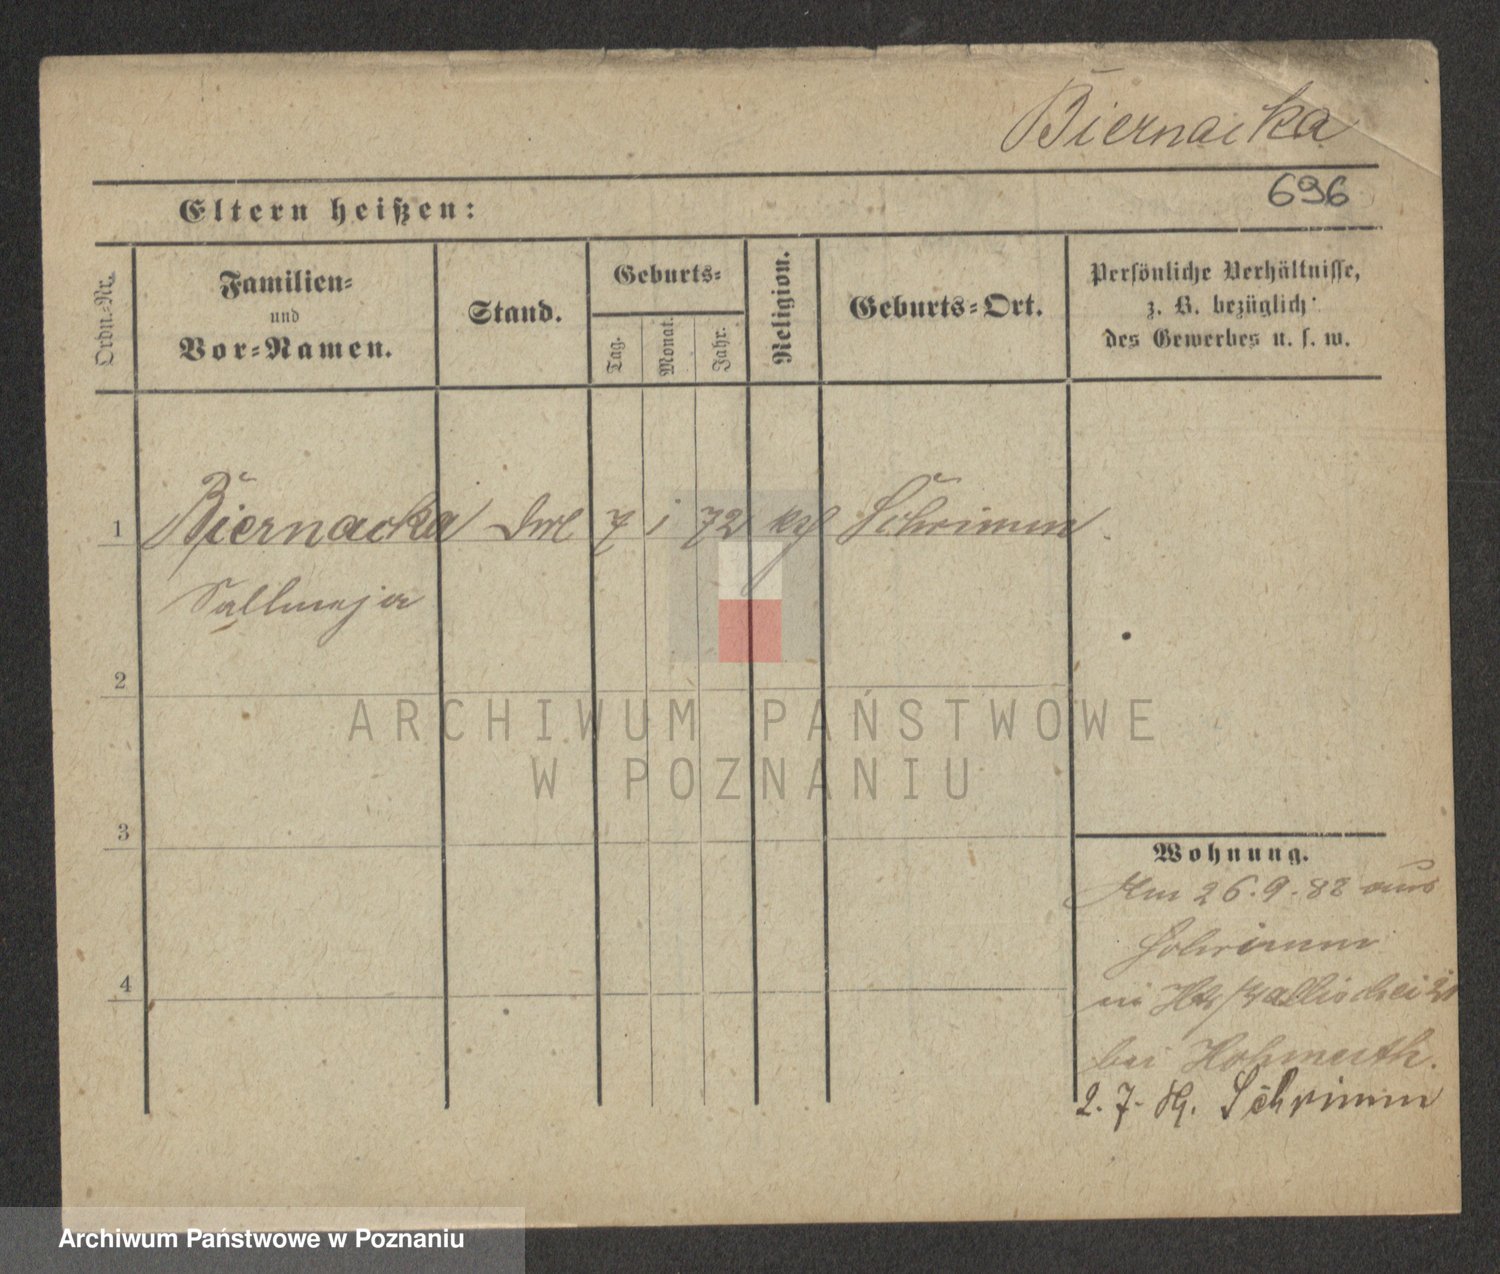 Biernacka
696
Eltern heißen:
Ordn.-Nr.
Familien-
und
Vor-Namen.
Stand.
Geburts-
Tag.
Monat.
Jahr.
Religion.
Geburts-Ort.
Persönliche Verhältnisse,
z. B. bezüglich
des Gewerbes u. s. w.
1 Biernacka 7 1 72 Schrimm
2
ARCHIWUM PAŃSTWOWE
W POZNANIU
3
Wohnung.
26.9.88 aus
Schrimm
4
bei
2.7. Schrimm
Archiwum Państwowe w Poznaniu